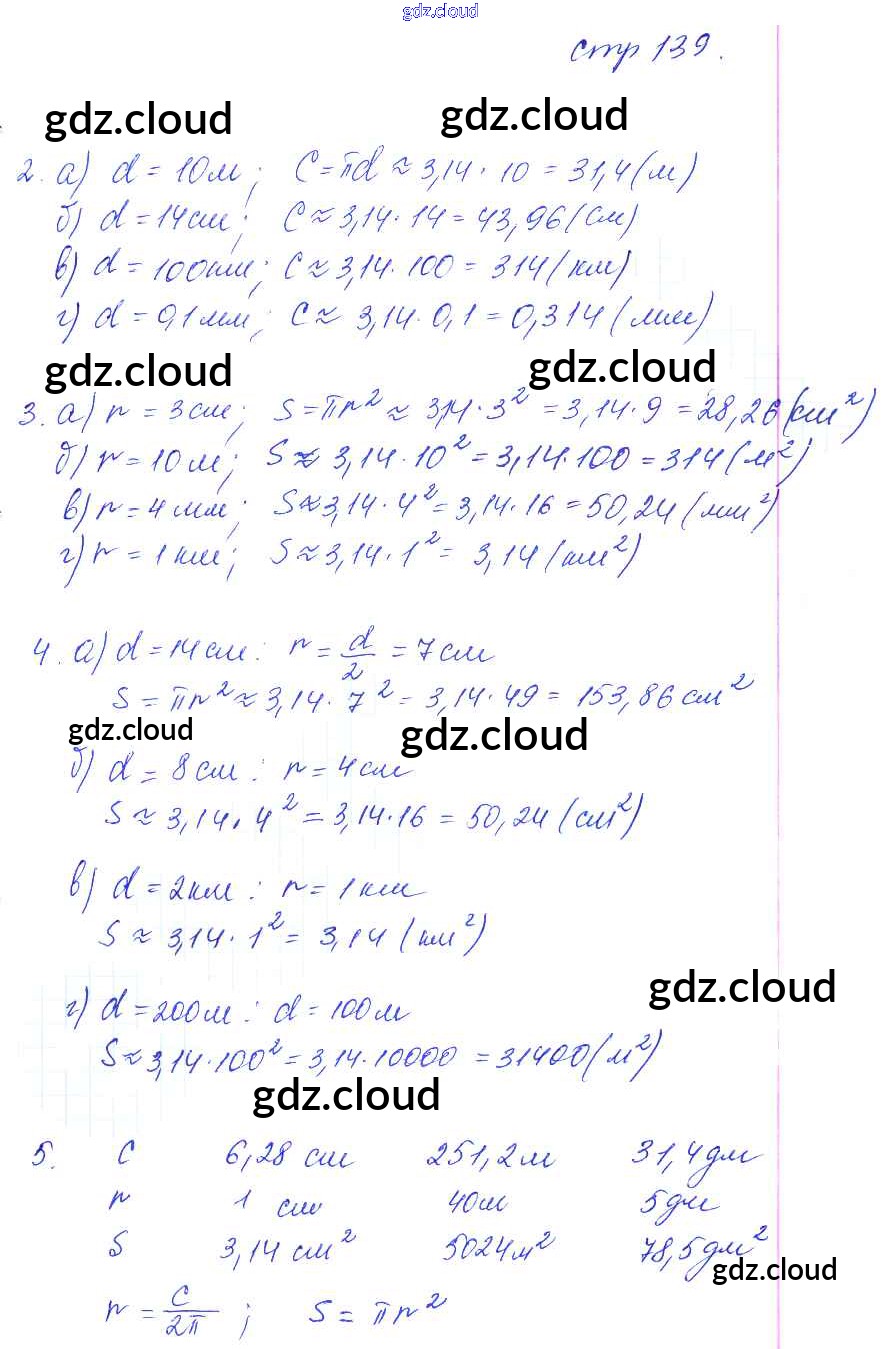 gdz.cloud
стр 139.
gdz.cloud gdz.cloud
2. а) d = 10 м; C = πd ≈ 3,14 · 10 = 31,4 (м)
б) d = 14 см; C ≈ 3,14 · 14 = 43,96 (см)
в) d = 100 км; C ≈ 3,14 · 100 = 314 (км)
г) d = 0,1 мм; C ≈ 3,14 · 0,1 = 0,314 (мм)
gdz.cloud gdz.cloud
3. а) r = 3 см; S = πr² ≈ 3,14 · 3² = 3,14 · 9 = 28,26 (см²)
б) r = 10 м; S ≈ 3,14 · 10² = 3,14 · 100 = 314 (м²)
в) r = 4 мм; S ≈ 3,14 · 4² = 3,14 · 16 = 50,24 (мм²)
г) r = 1 км; S ≈ 3,14 · 1² = 3,14 (км²)
4. а) d = 14 см: r = d/2 = 7 см
S = πr² ≈ 3,14 · 7² = 3,14 · 49 = 153,86 см²
gdz.cloud gdz.cloud
б) d = 8 см: r = 4 см
S ≈ 3,14 · 4² = 3,14 · 16 = 50,24 (см²)
в) d = 2 км: r = 1 км
S ≈ 3,14 · 1² = 3,14 (км²)
gdz.cloud
г) d = 200 м: d = 100 м
S ≈ 3,14 · 100² = 3,14 · 10000 = 31400 (м²)
gdz.cloud
5. C 6,28 см 251,2 м 31,4 дм
r 1 см 40 м 5 дм
S 3,14 см² 5024 м² 78,5 дм²
gdz.cloud
r = C/2π; S = πr²